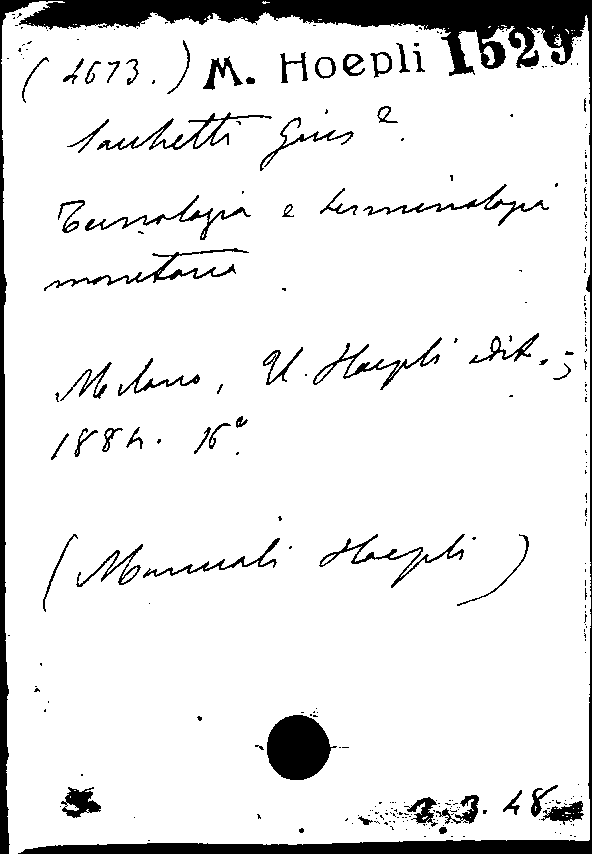 (4673.) M. Hoepli 1529
Sacchetti Gius e.
Tecnologia e terminologia
monetaria
Milano, U. Hoepli edit.,
1884. 16°
(Manuali Hoepli)
3.3.48